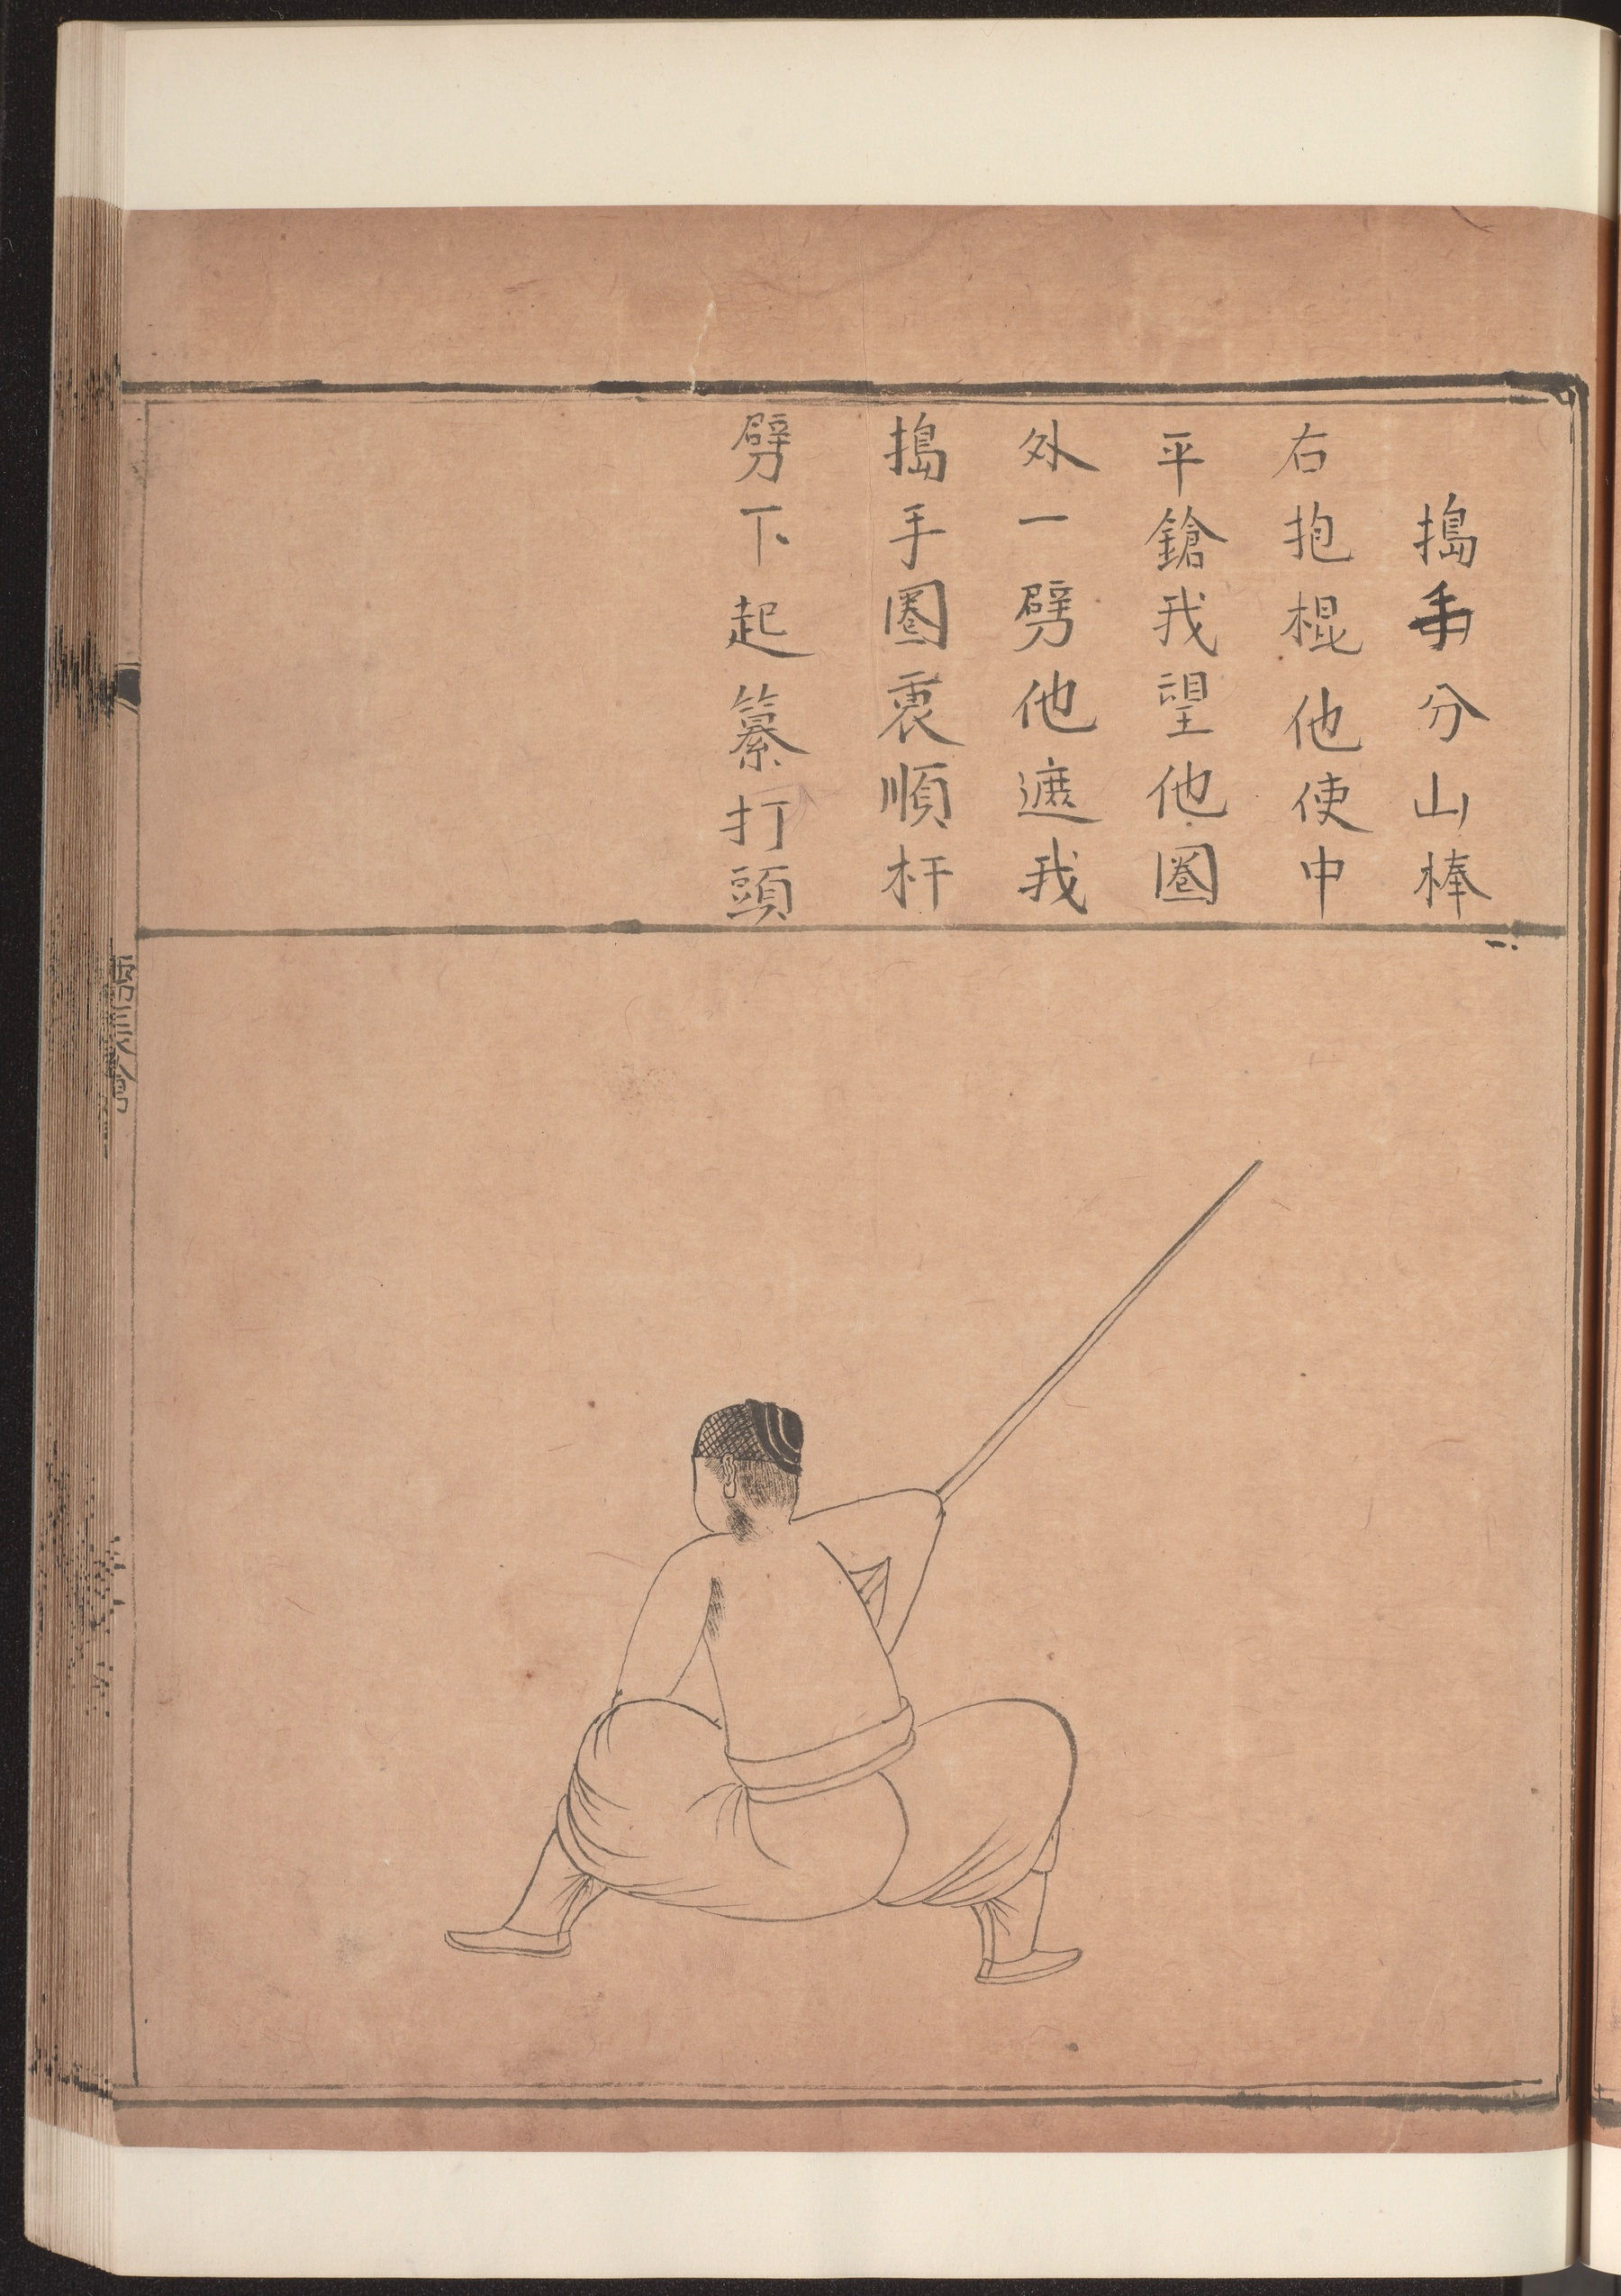 搗手分山棒
右抱棍他使中
平鎗我望他圈
外一劈他遮我
搗手圈裏順杆
劈下起纂打頭